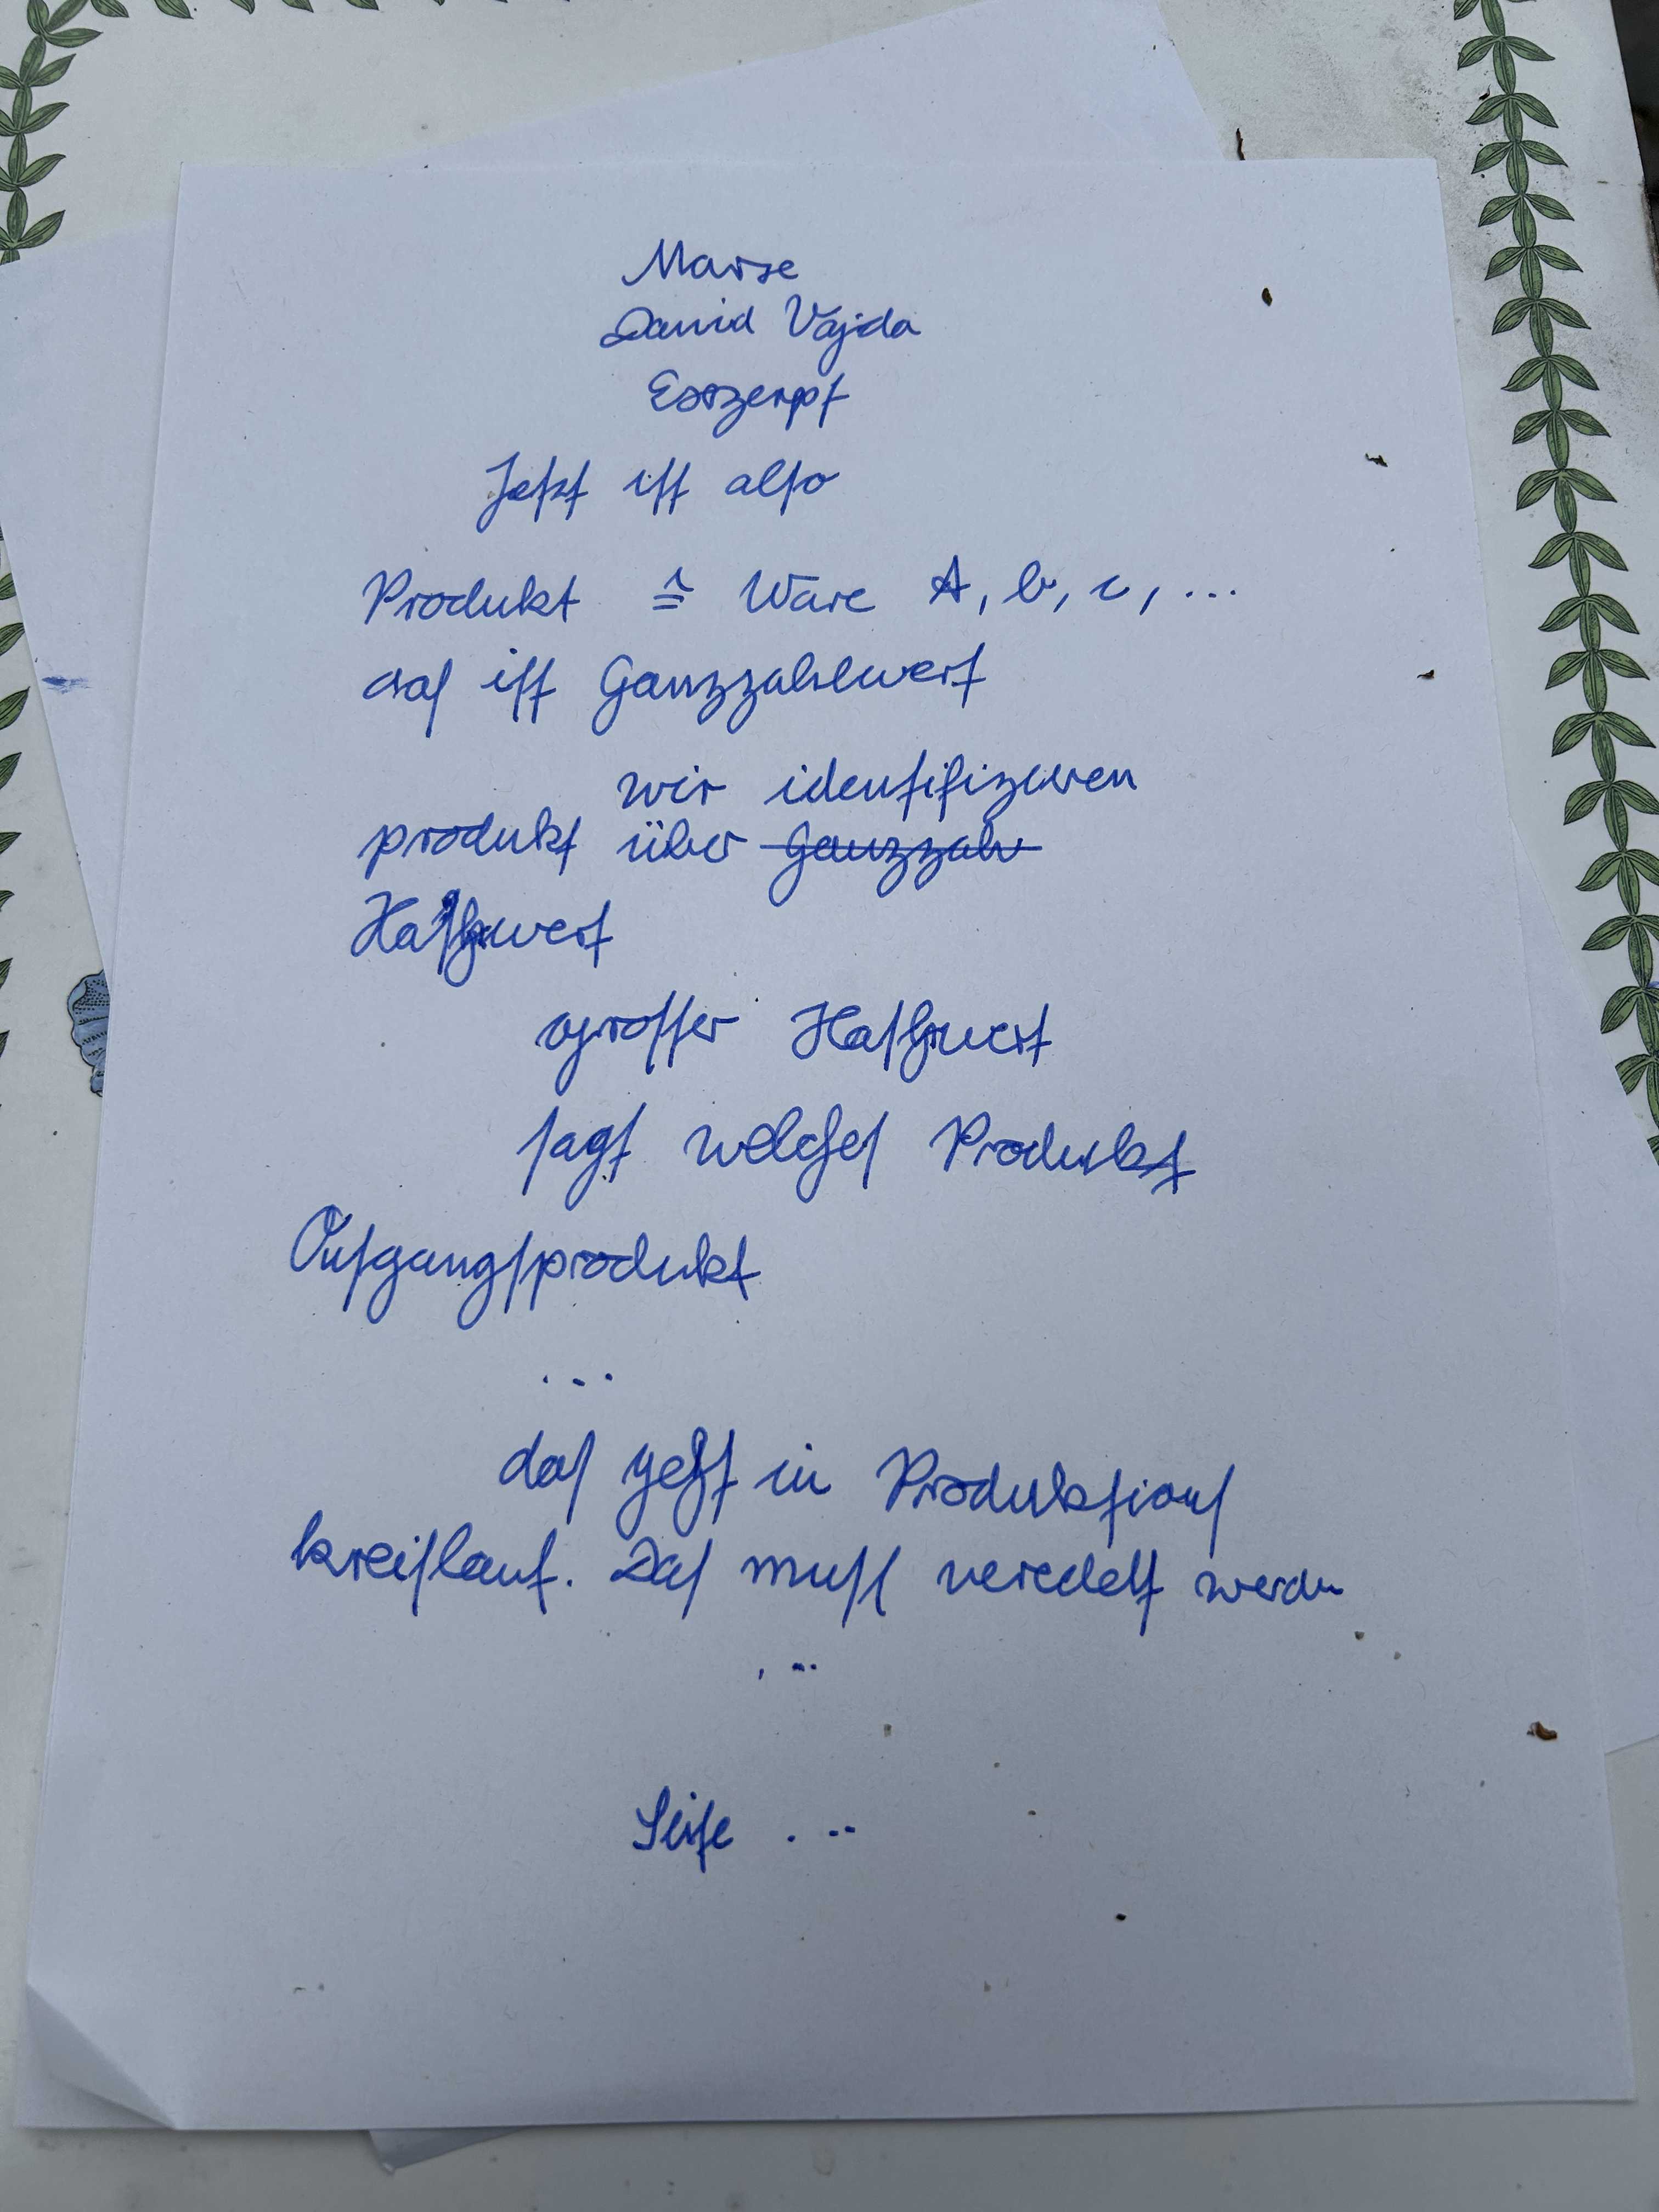 Marxe
David Vajda
Exzerpt
Jetzt ist also
Produkt ≙ Ware A, b, c, ...
das ist Ganzzahlwert
wir identifizieren
produkt über ~~Ganzzahl~~
Hashwert
grosser Hashwert
sagt welches Produkt
Ausgangsprodukt
...
das geht in Produktions
kreislauf. Das muss veredelt werden
...
Seife ...